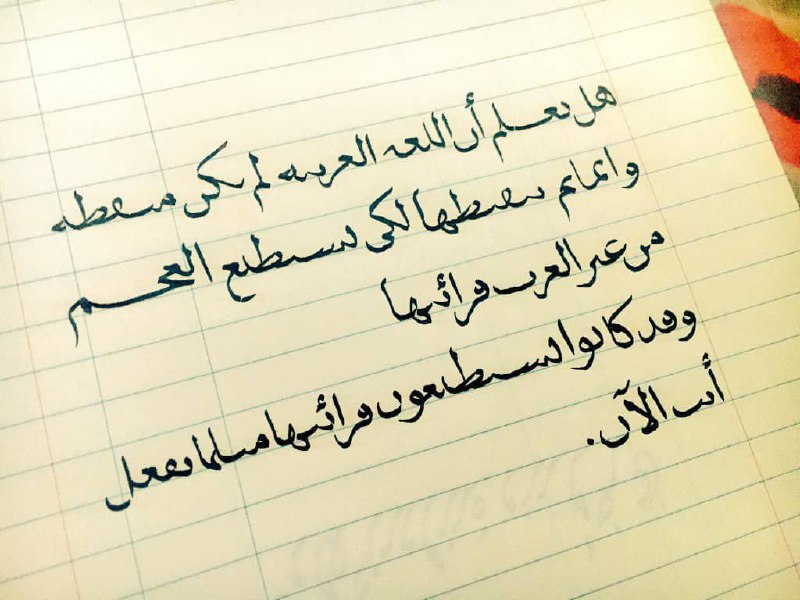 هل تعلم أن اللغة العربية لم تكن منقطة
وانما تم تنقيطها لكي تستطيع العجم
من غير العرب قرائتها
وقد كانوا يستطيعون قرائتها مثلما تفعل
أنت الآن.